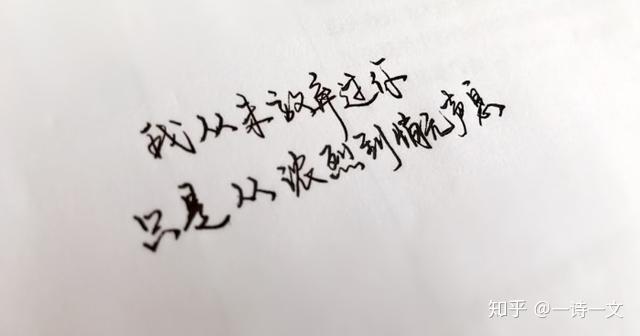 我从未放弃过你
只是从浓烈到悄无声息
知乎 @一诗一文